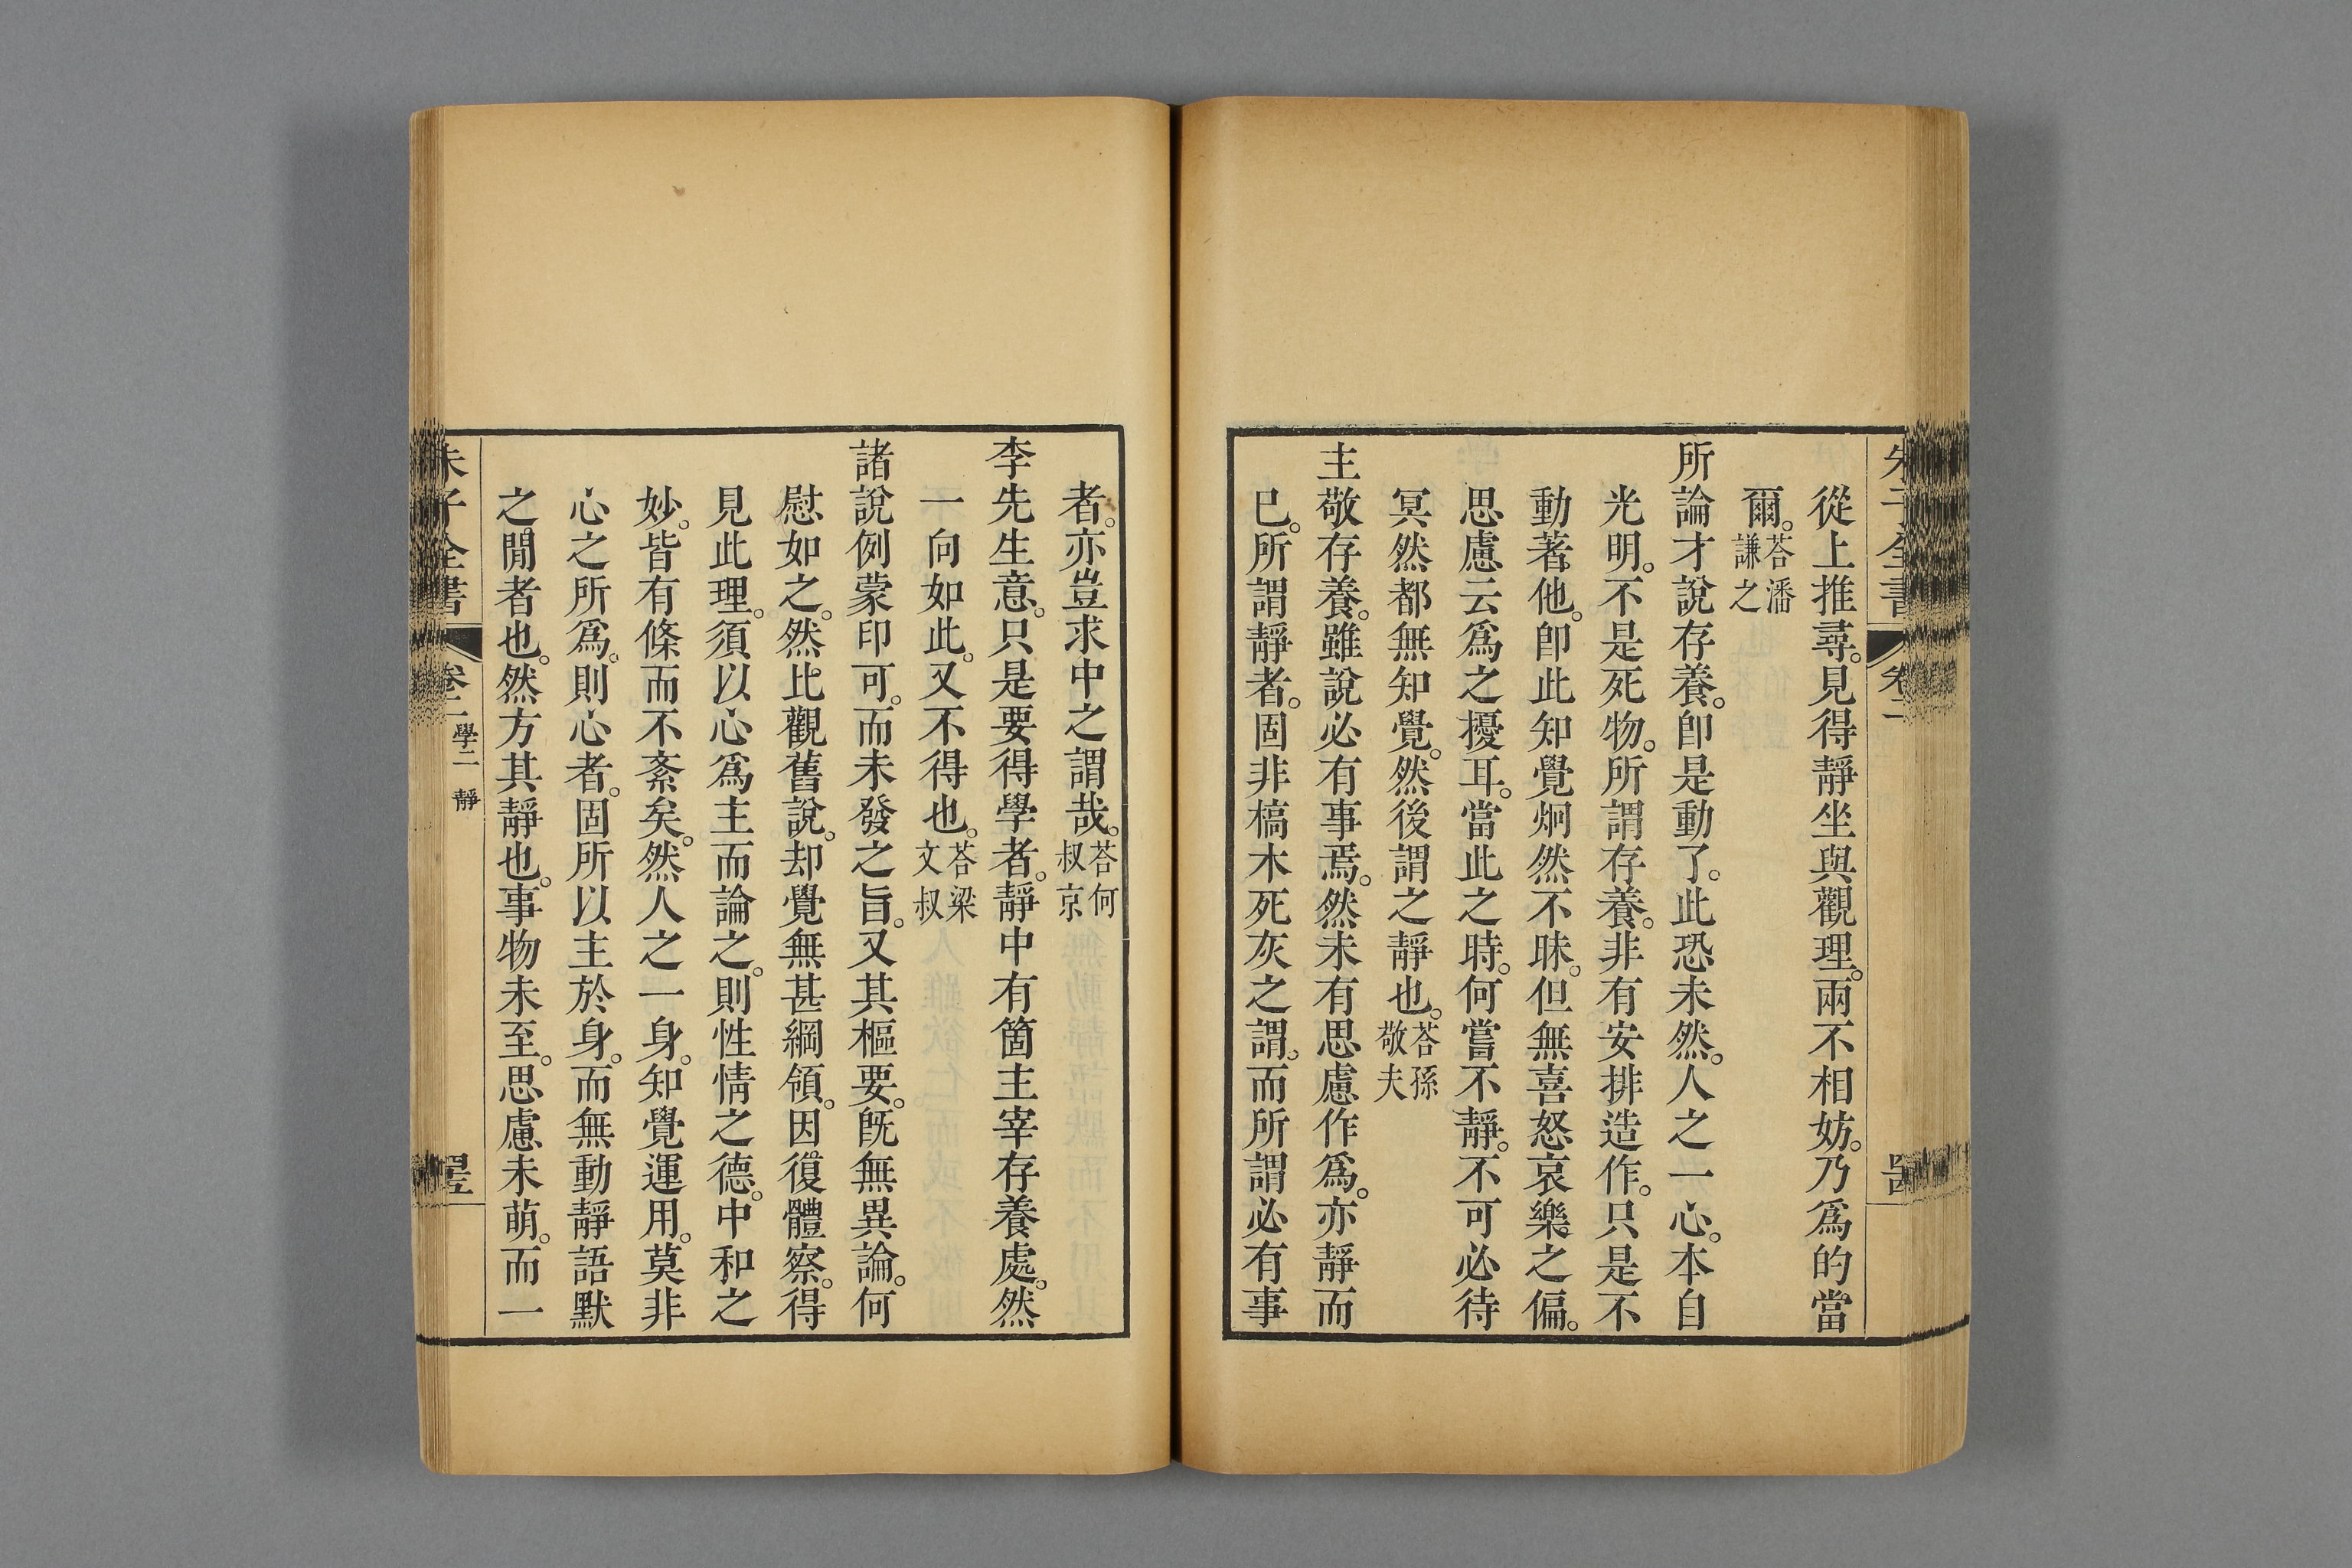 朱子全書 卷二
從上推尋。見得靜坐與觀理。兩不相妨。乃爲的當
爾。荅潘謙之
所論才說存養。卽是動了。此恐未然。人之一心。本自
光明。不是死物。所謂存養。非有安排造作。只是不
動著他。卽此知覺炯然不昧。但無喜怒哀樂之偏。
思慮云爲之擾耳。當此之時。何嘗不靜。不可必待
冥然都無知覺。然後謂之靜也。荅孫敬夫
主敬存養。雖說必有事焉。然未有思慮作爲。亦靜而
已。所謂靜者。固非槁木死灰之謂。而所謂必有事
者。亦豈求中之謂哉。荅何叔京
李先生意。只是要得學者。靜中有箇主宰存養處。然
一向如此。又不得也。荅梁文叔
諸說例蒙印可。而未發之旨。又其樞要。旣無異論。何
慰如之。然比觀舊說。却覺無甚綱領。因復體察。得
見此理。須以心爲主而論之。則性情之德。中和之
妙。皆有條而不紊矣。然人之一身。知覺運用。莫非
心之所爲。則心者。固所以主於身。而無動靜語默
之閒者也。然方其靜也。事物未至。思慮未萌。而一
朱子全書 卷二 學二 靜